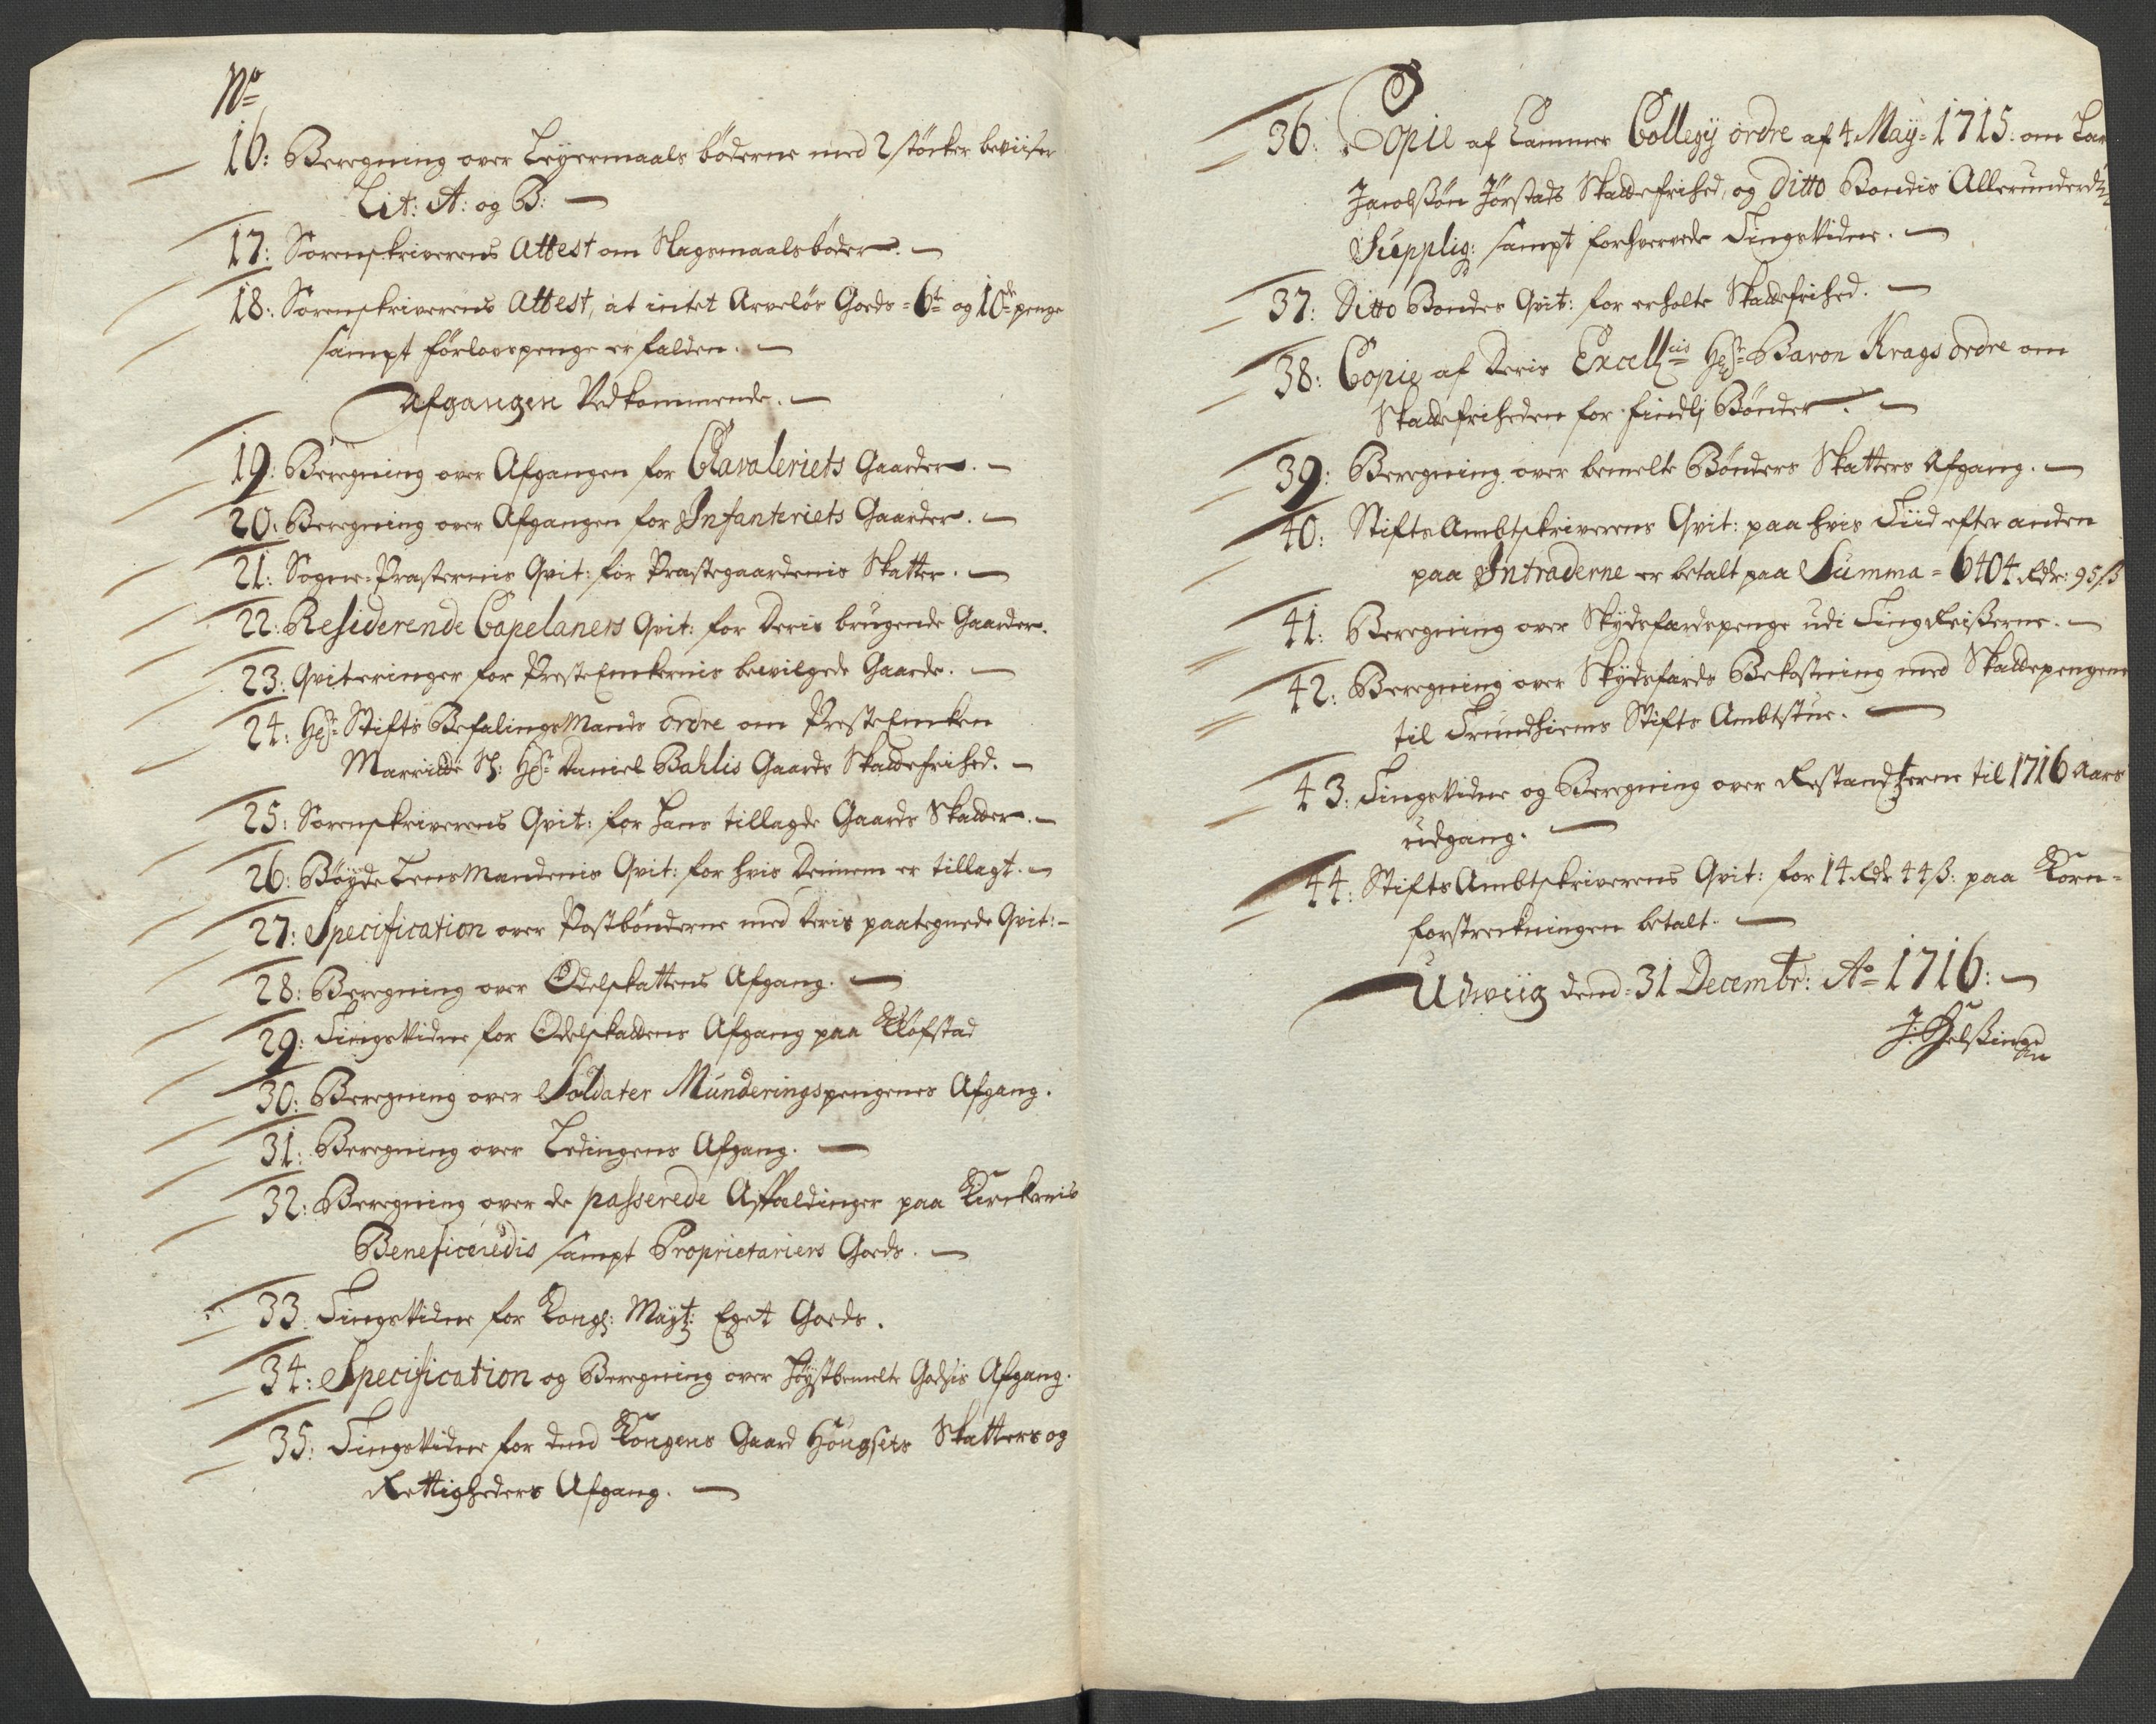 No
16: Beregning over Leyermaals bøderne med 2 støcker beviiser
Lit: A: og B: —
17: Sorenskriverens Attest om Slagsmaalsbøder. —
18: Sorenskriverens Attest, at intet Arveløs Goeds = 6te og 10de penge
sampt førlovspenge er falden. —
Afgangen Vedkommende. —
19: Beregning over Afgangen for Cavaleriets Gaarder. —
20: Beregning over Afgangen for Infanteriets Gaarder. —
21: Sogne-Præsternis Qvit: for Præstegaardenis Skatter. —
22: Residerende Capelaners Qvit: for deris brugende Gaarder.
23: Qviteringer for PresteEnkernis bevilgede Gaarde. —
24: Hr Stifts BefalingsMands ordre om PresteEnken
Sl: Hr Daniel Bahlis Gaards Skattefrihed. —
25: Sorenskriverens Qvit: for hans tillagde Gaards Skatter. —
26: Bøyde LensMandenis Qvit: for hvis dennem er tillagt. —
27: Specification over Postbønderne med deris paategnede Qvit: —
28: Beregning over Odelskattens Afgang. —
29: TingsVidne for Odelskattens Afgang paa Kløfstad
30: Beregning over Soldater Munderingspengenes Afgang.
31: Beregning over Ledingens Afgang. —
32: Beregning over de passerede Affældinger paa Kirckernis
Beneficeredis sampt Proprietariers Goeds. —
33. TingsVidne for Kongl: Mayt: Eget Goeds.
34: Specification og Beregning over høystbemelte Godsis Afgang.
35: TingsVidne for dend Kongens Gaard Hougsets Skatters og
Rettigheders Afgang. —
36: Copie af Cammer Collegij ordre af 4 May = 1715: om
Jacobssøn Jørstads Skattefrihed, og ditto Bondis
Supplig: sampt forhvervede TingsVidne. —
37: Ditto Bondes Qvit: for erholte Skattefrihed. —
38: Copie af deris Excellcis Hr Baron Krags ordre om
Skattefriheden for Findlj Bønder. —
39: Beregning over bemelte Bønders Skatters Afgang. —
40: StiftsAmbtskriverens Qvit: paa hvis Tiid efter anden
paa Intraderne er betalt paa Summa = 6404 Rdr: 95 ß
41: Beregning over Skydsfærdspenge udi TingReisserne. —
42: Beregning over Skydsfærds Bekostning med Skattepengene
til Trundhiems Stifts Ambtstue. —
43: TingsVidne og Beregning over Restandtzerne til 1716 Aars
udgang. —
44: StiftsAmbtskriverens Qvit: for 14 Rdr 44 ß: paa Korn-
forstreckningen betalt. —
Udwiig dend: 31 Decembr: Ao 1716: —